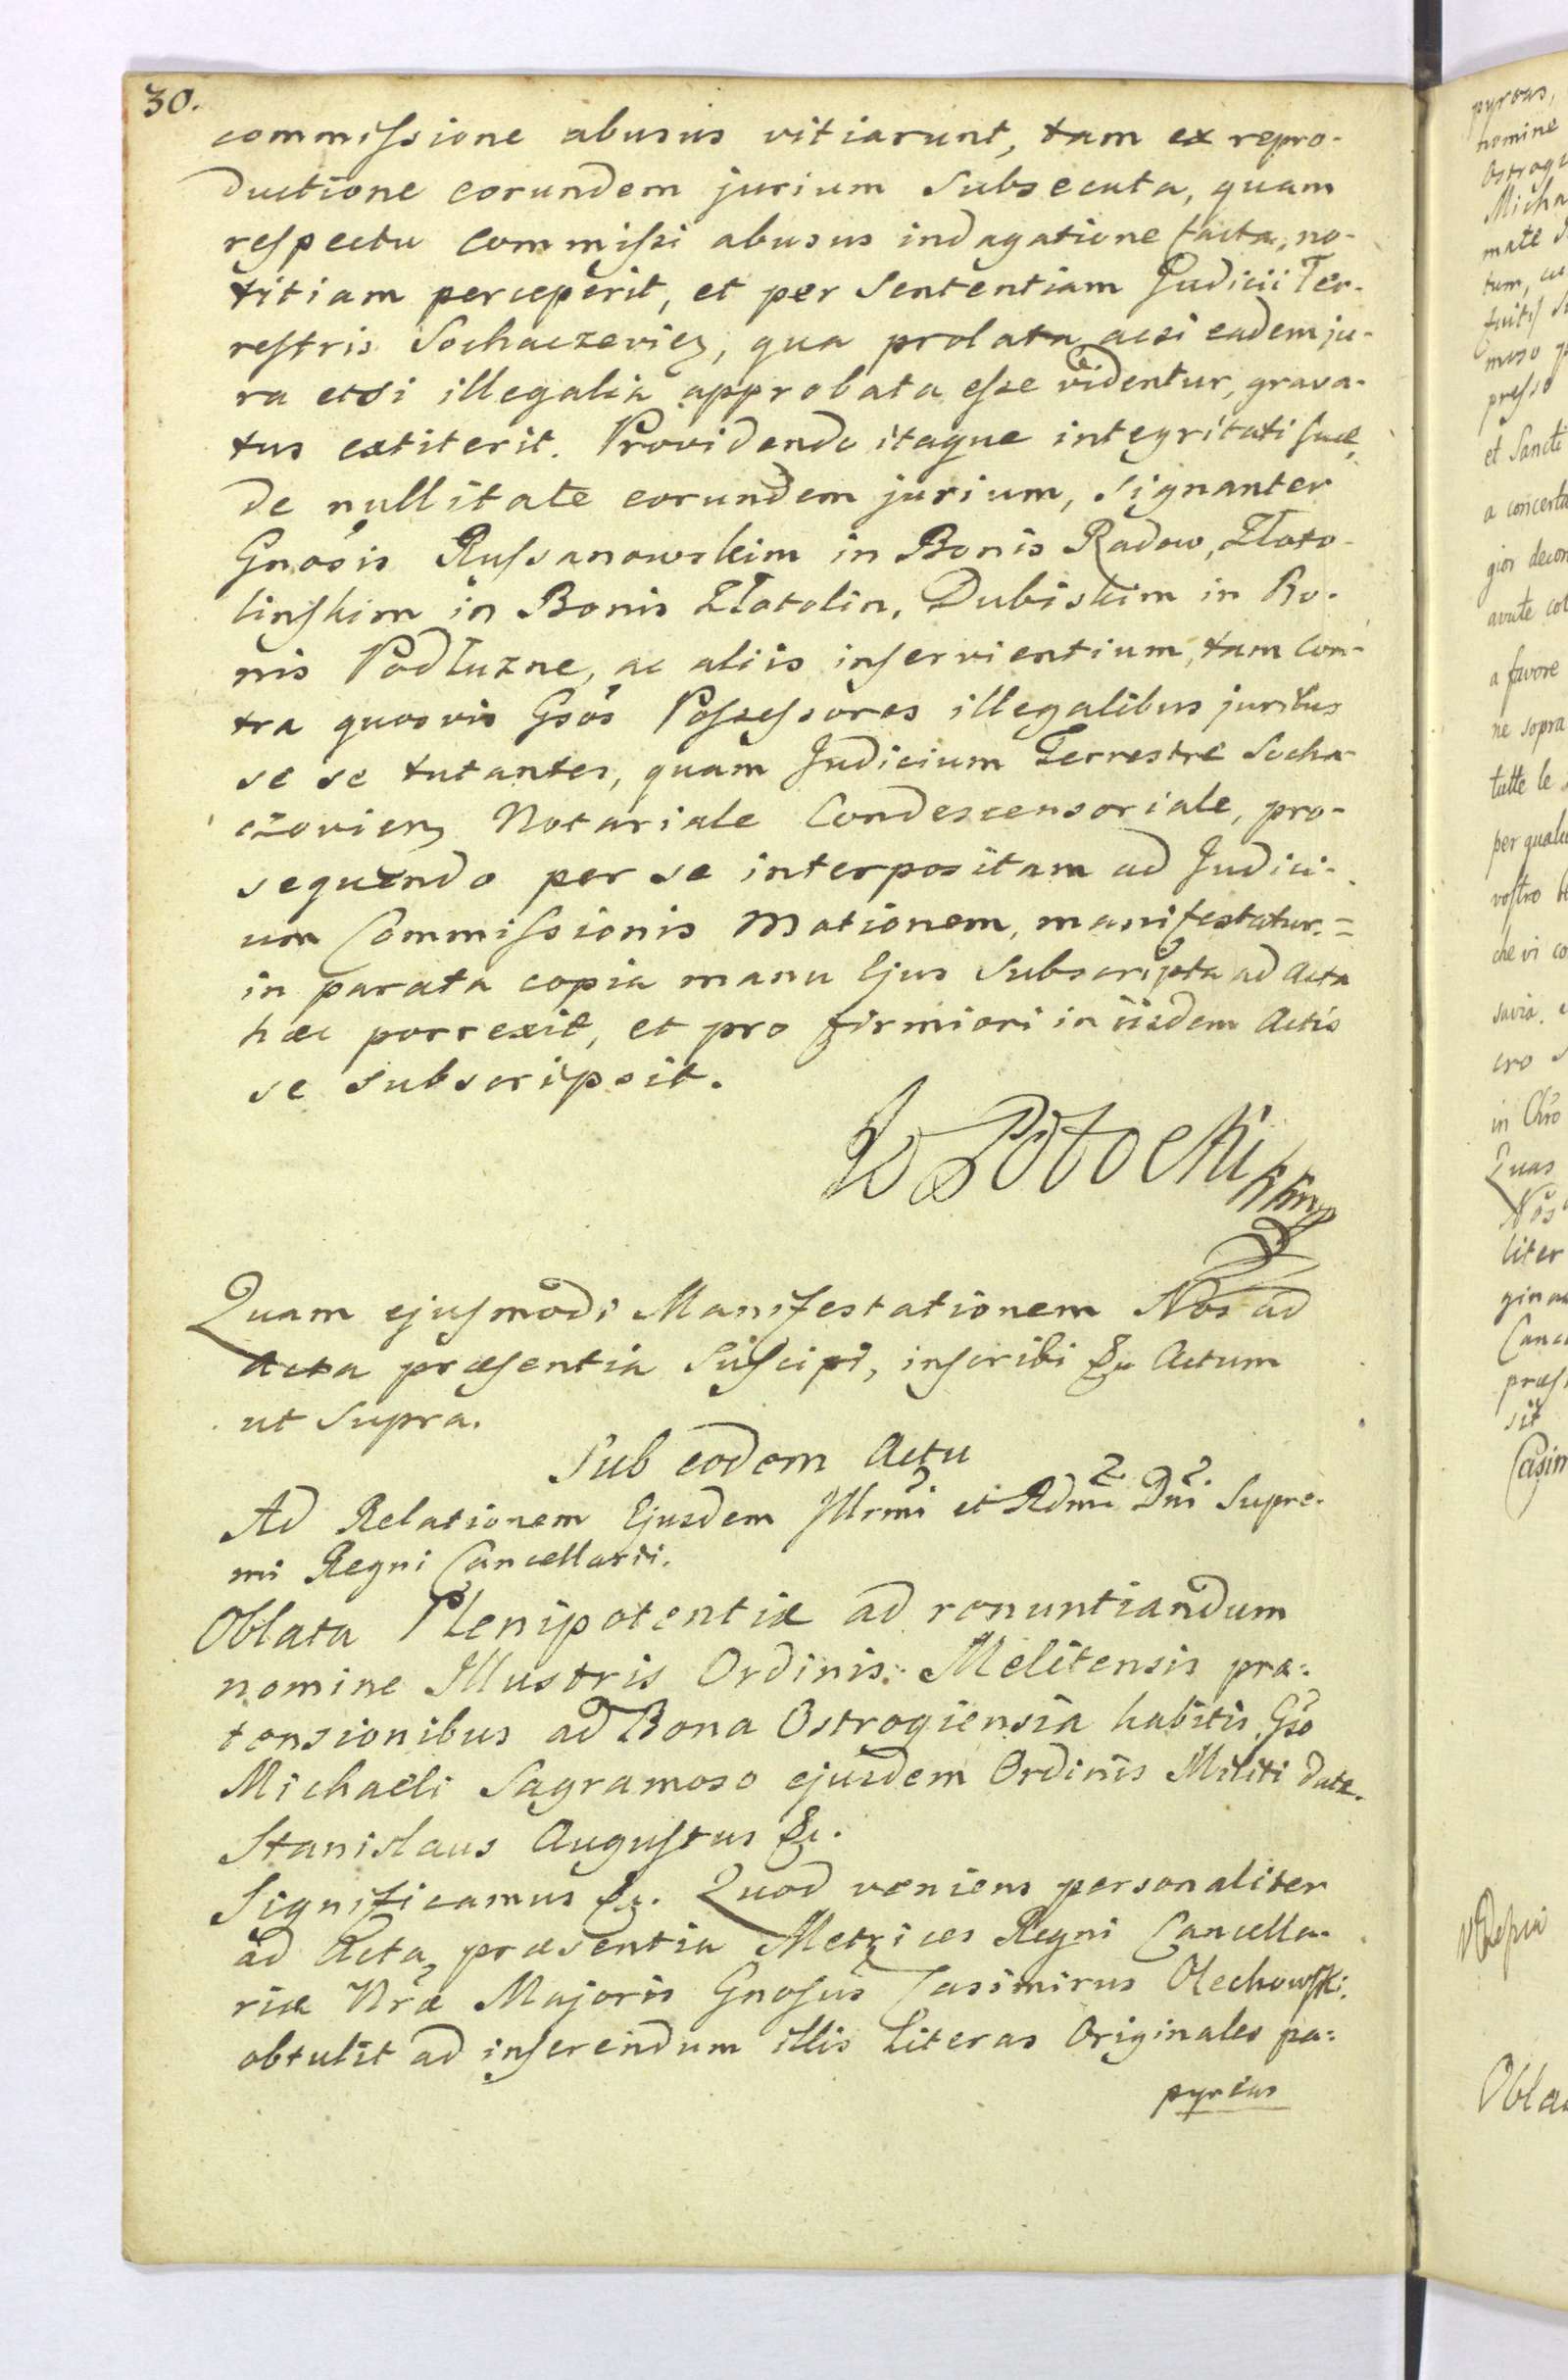 30.
commissione abusus vitiarunt, tam ex repro-
ductione eorundem jurium subsecuta, quam
respectu commissi abusus indagatione facta, no-
titiam perceperit, et per Sententiam Judicii Ter-
restris Sochaczevien, qua prolata acsi eadem ju-
ra etsi illegalia approbata esse videntur, grava-
tus extiterit. Providendo itaque integritati suæ,
de nullitate eorundem jurium, signanter
Gnosis Russanowskim in Bonis Radow, Złoto-
linskim in Bonis Złotolin, Dubiskim in Bo-
nis Podłuzne, ac aliis inservientium, tam con-
tra quosvis Gsos Possessores illegalibus juribus
se se tutantes, quam Judicium Terrestre Socha-
czovien, Notariale Condescensoriale, pro-
sequendo per se interpositam ad Judici-
um Commissionis Motionem, manifestatur. =
in parata copia manu Ejus subscripta ad Acta
hæc porrexit, et pro firmiori in iisdem Actis
se subscripsit.
Potocki
Quam ejusmodi Manifestationem Nos ad
Acta præsentia suscipi, inscribi &c Actum
ut supra.
Sub eodem Actu
Ad Relationem Ejusdem Illrmi et Rdmi Dni Supre-
mi Regni Cancellarii.
Oblata Plenipotentiæ ad renuntiandum
nomine Illustris Ordinis Melitensis præ-
tensionibus ad Bona Ostrogiensia habitis Gso
Michaeli Sagramoso ejusdem Ordinis Militi datæ.
Stanislaus Augustus &c.
Significamus &c. Quod veniens personaliter
ad Acta præsentia Metrices Regni Cancella-
riæ Nræ Majoris Gnosus Casimirus Olechowski
obtulit ad inserendum illis Literas Originales pa-
pyreas
pyreas,
nomine
Micha
mate
tum,
moso
presso
et Sancti
a favore
ne sopra
tutte le
vostro
che vi co
savio.
ero
Quas
Nos
liter
gina
Canc
præs
sit
Casim
Obla